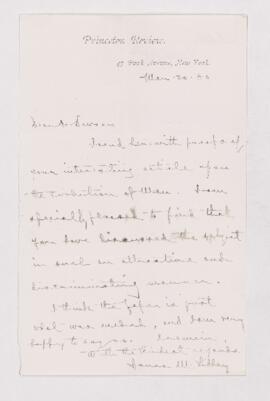 Princeton Review.
47 Park Avenue, New York.
Mar 20. 80
Dear Dr Dawson
I send herewith proofs of
your interesting article upon
the Evolution of Man. I am
specially pleased to find that
you have discussed the subject
in such an attractive and
discriminating manner.
I think the paper is just
what was needed, and am very
happy to say so. I remain,
with the kindest regards
Jonas M. Libbey